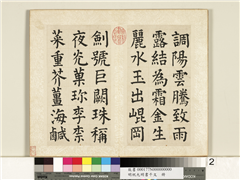 調陽雲騰致雨
露結為霜金生
麗水玉出崐岡
劍號巨闕珠稱
夜光菓珎李柰
菜重芥薑海鹹
2